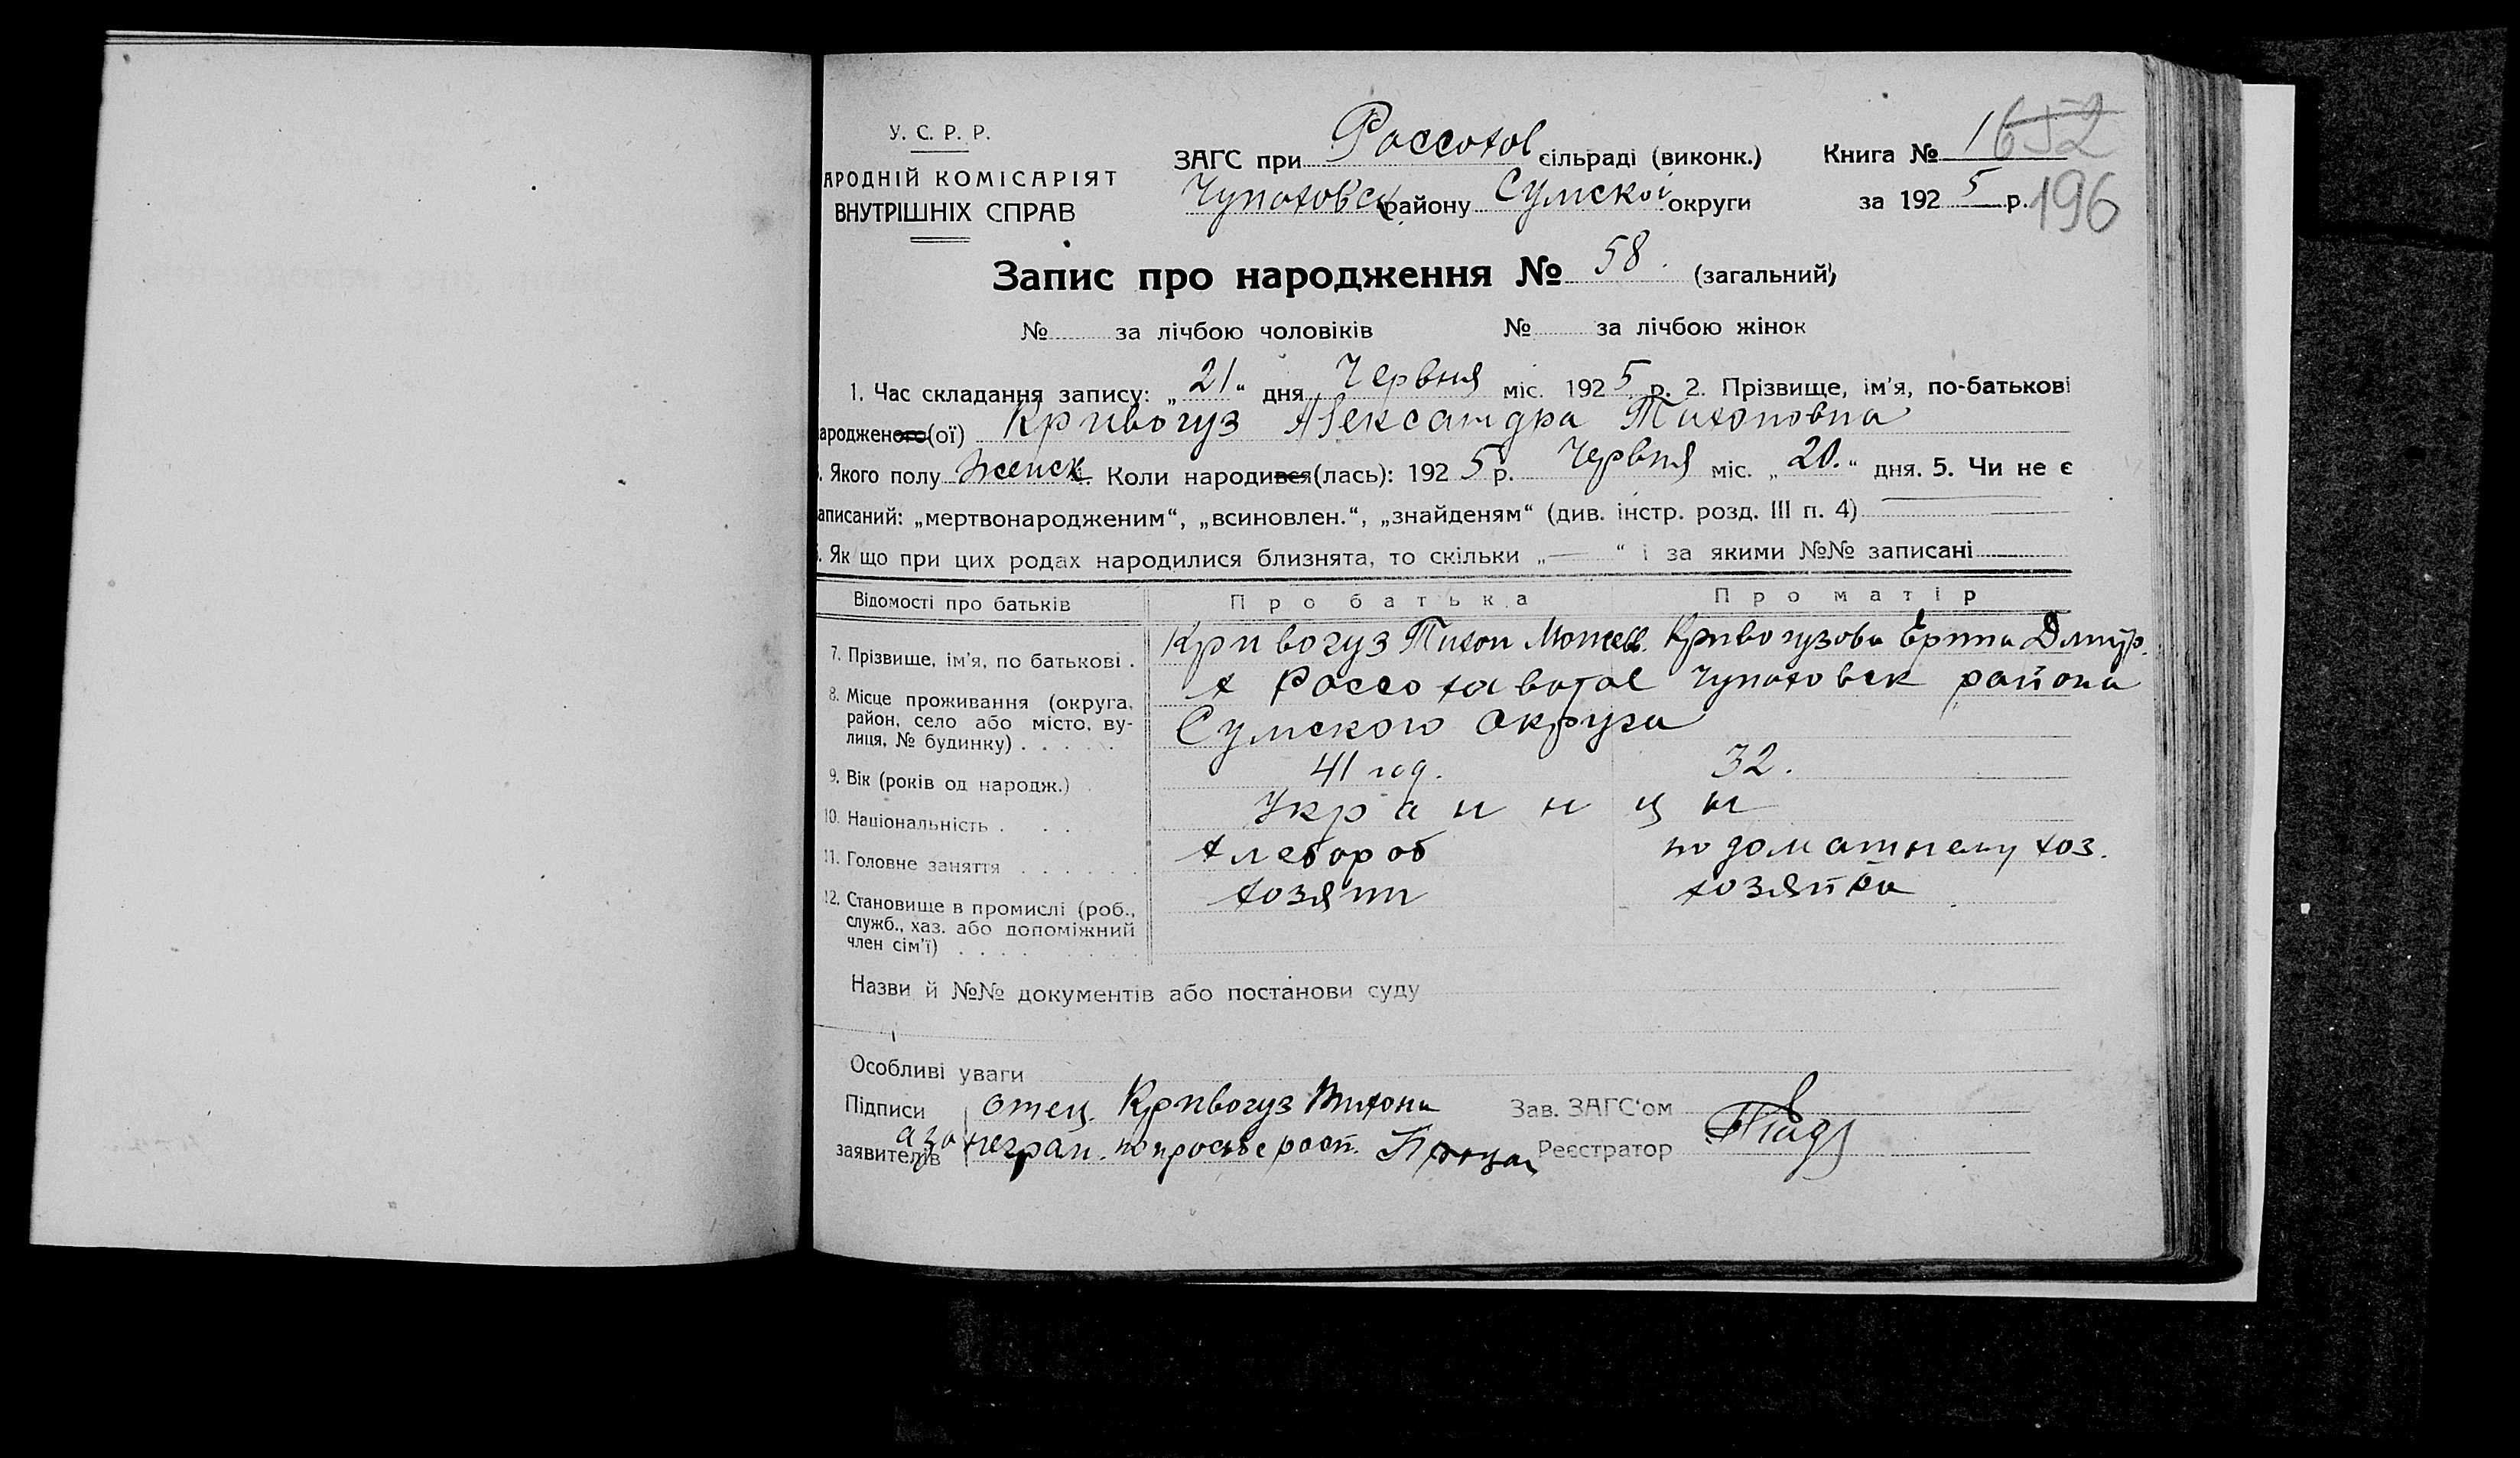 У. С. Р. Р.
АРОДНІЙ КОМІСАРІЯТ
ВНУТРІШНІХ СПРАВ
ЗАГС при Россохов сільраді (виконк.) Книга № 1 652
Чупаховск району Сумской округи за 1925 р. 196
Запис про народження № 58. (загальний)
№ за лічбою чоловіків № за лічбою жінок
1. Час складання запису: „21“ дня Червня міс. 1925 р. 2. Прізвище, ім’я, по-батькові
ародженого(ої) Кривогуз Александра Тихоновна
. Якого полу женск. Коли народився(лась): 1925 р. Червня міс. „20.“ дня. 5. Чи не є
аписаний: „мертвонародженим“, „всиновлен.“, „знайденям“ (див. інстр. розд. III п. 4)
. Як що при цих родах народилися близнята, то скільки „—“ і за якими №№ записані
Відомості про батьків Про батька Про матір
7. Прізвище, ім’я, по батькові . Кривогуз Тихон Кривогузова Дмитр.
8. Місце проживання (округа, район, село або місто, ву- лиця, № будинку) . . . . . х Чупаховск района
Сумского округа
9. Вік (років од народж.) 41 год. 32.
10. Національність . . . Украинцы
11. Головне заняття . . . . . . хлебороб по домашнему хоз.
12. Становище в промислі (роб., служб., хаз. або допоміжний член сім’ї) . . . . хозяин хозяйка
Назви й №№ документів або постанови суду
Особливі уваги
Підписи отец. Кривогуз Тихон Зав. ЗАГС‘ом
заявителів а за неграм. по просьбе расп. Реєстратор